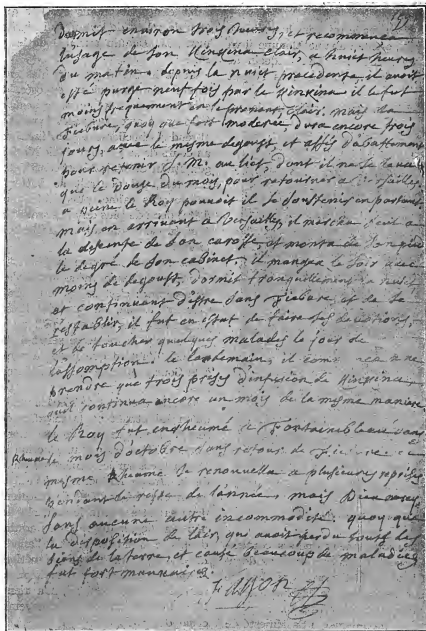 157
dormit environ trois heures, et recommença
l'usage de son Kinkina clair, a huit heures
du matin. depuis la nuict precedente, il avoit
esté purgé neuf fois par le Kinkina il le fut
moins frequemment en le prenant clair. mais la
fiebvre, quoy que fort moderée, dura encore trois
jours, avec le mesme degoust, et assés d'abattement
pour retenir S. M. au lict, dont il ne se leva
que le douze du mois, pour retourner a Versailles,
a peine le Roy pouvoit il se soustenir en partant
mais en arrivant a Versailles, il marcha seul a
la descente de son carosse, et monta de son pied
le degré de son cabinet, il mangea le soir avec
moins de degoust, dormit tranquillement la nuict
et continuant d'estre sans fiebvre, et de se
restablir, il fut en estat de faire ses devotions,
et de toucher quelques malades le jour de
l'assomption. le lendemain, il commença a ne
prendre que trois prises d'infusion de Kinkina
qu'il continua encore un mois de la mesme maniere.
le Roy fut enrhumé a Fontainebleau dans
Rhume le mois d'octobre, sans retour de fiebvre, ce
mesme Rhume se renouvella a plusieurs reprises
pendant le reste de l'année, mais Dieu mercy
sans aucune autre incommodité. quoy que
la disposition de l'air, qui avoit perdu touts les
biens de la terre, et causé beaucoup de maladies
fut fort mauvaise.
Fagon